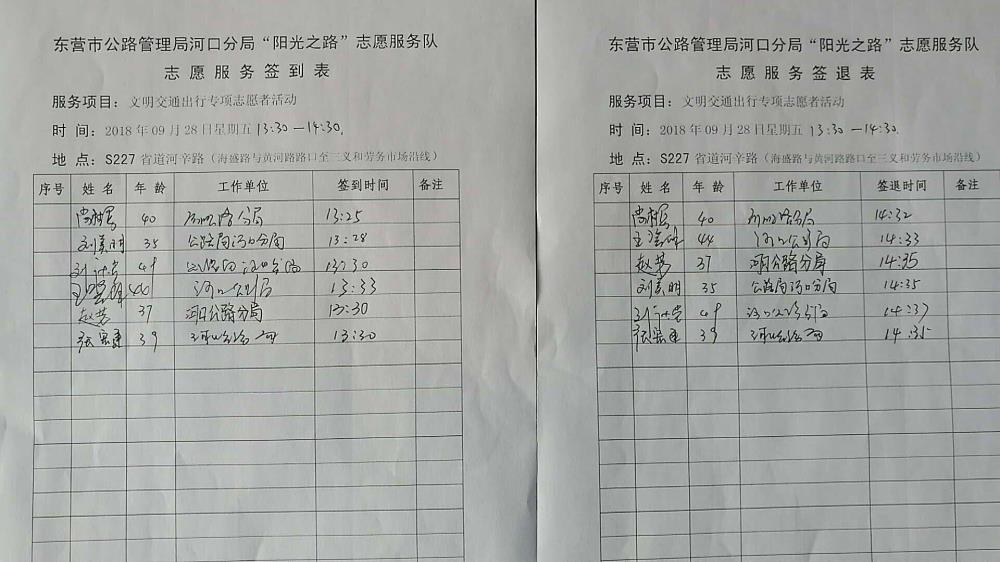 东营市公路管理局河口分局“阳光之路”志愿服务队
志愿服务签到表
服务项目：文明交通出行专项志愿者活动
时 间：2018年09月28日星期五 13:30—14:30.
地 点：S227省道河辛路（海盛路与黄河路路口至三义和劳务市场沿线）
序号 姓名 年龄 工作单位 签到时间 备注
40 分局 13:25
刘美明 35 公路局河口分局 13:28
刘 49 13:30
王 40 13:33
赵芳 37 河口公路分局 13:30
张 39 13:30
东营市公路管理局河口分局“阳光之路”志愿服务队
志愿服务签退表
服务项目：文明交通出行专项志愿者活动
时 间：2018年09月28日星期五 13:30—14:30.
地 点：S227省道河辛路（海盛路与黄河路路口至三义和劳务市场沿线）
序号 姓名 年龄 工作单位 签退时间 备注
40 分局 14:32
王 44 14:33
赵芳 37 河口公路分局 14:35
刘美明 35 公路局河口分局 14:35
刘 49 14:37
张 39 14:35